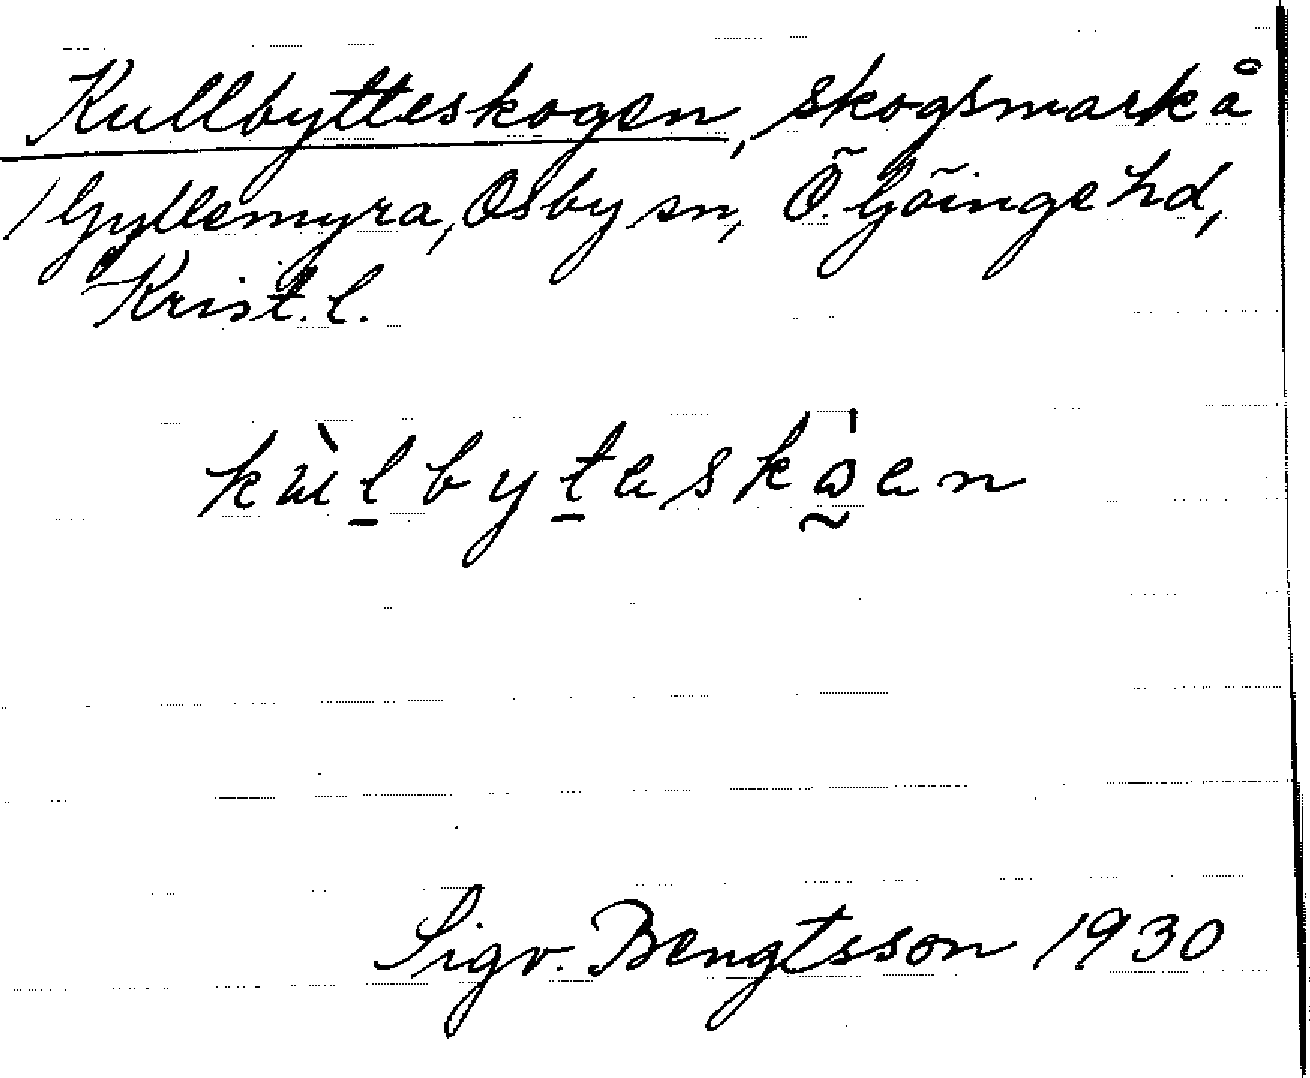 Kullbytteskogen, skogsmark å
1 Gyllemyra, Osby sn, Ö. Göinge hd,
Krist. l.
kùlbyteskåen
Sigv. Bengtsson 1930